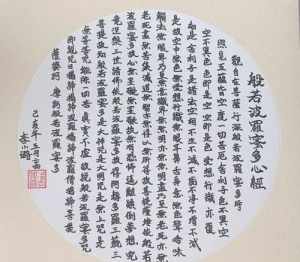 般若波羅蜜多心經
觀自在菩薩行深般若波羅蜜多時
照見五蘊皆空度一切苦厄舍利子色不異空
空不異色色即是空空即是色受想行識亦復
如是舍利子是諸法空相不生不滅不垢不淨不增不減
是故空中無色無受想行識無眼耳鼻舌身意無色聲香味
觸法無眼界乃至無意識界無無明亦無無明盡乃至無老死亦無
老死盡無苦集滅道無智亦無得以無所得故菩提薩埵依般若
波羅蜜多故心無罣礙無罣礙故無有恐怖遠離顛倒夢想究
竟涅槃三世諸佛依般若波羅蜜多故得阿耨多羅三藐三
菩提故知般若波羅蜜多是大神咒是大明咒是無上咒是
無等等咒能除一切苦真實不虛故說般若波羅蜜多咒
即說咒曰揭諦揭諦波羅揭諦波羅僧揭諦菩提
薩婆訶 摩訶般若波羅蜜多
己亥年五月
李小